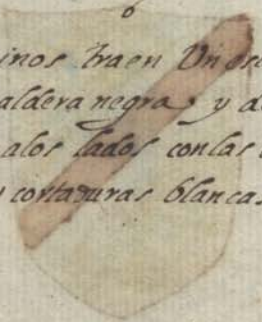 6
inos traen Un esc
aldera negra, y d
alos lados con las
y cortaduras blancas